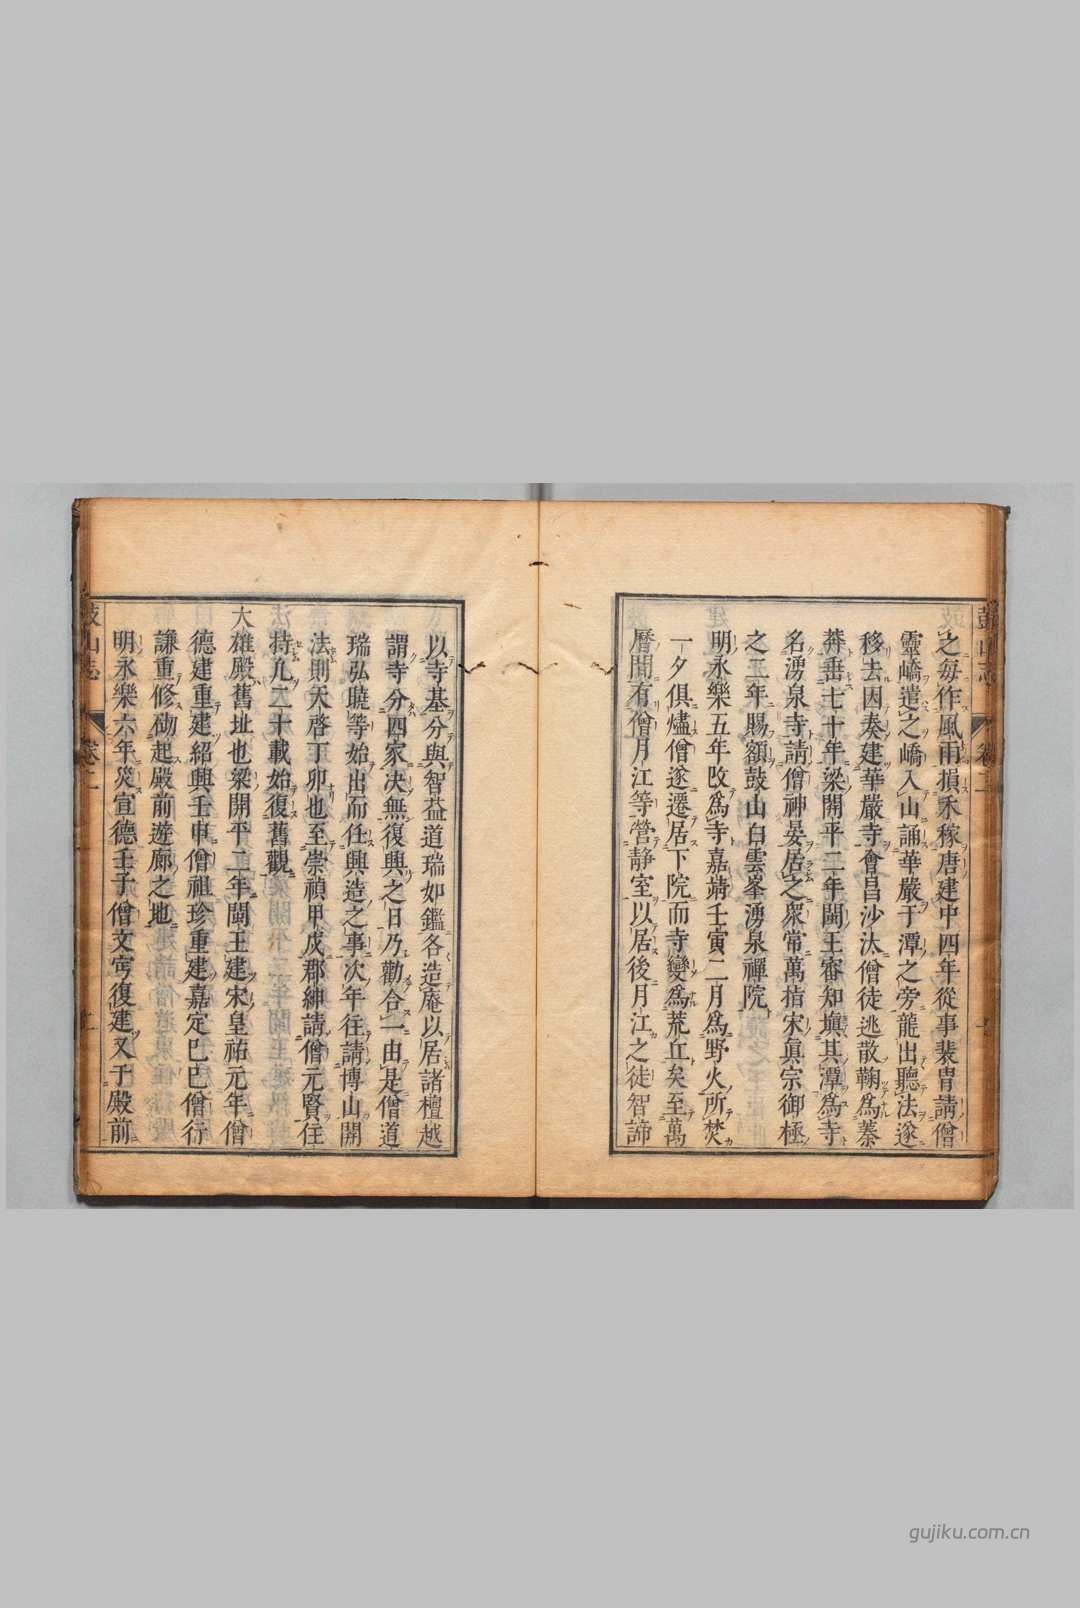 鼓山志 卷二
之每作風雨損禾稼唐建中四年從事裴胄請僧
靈嶠遣之嶠入山誦華嚴于潭之旁龍出聽法遂
移去因奏建華嚴寺會昌沙汰僧徒逃散鞠爲蓁
莽垂七十年梁開平二年閩王審知塡其潭爲寺
名湧泉寺請僧神晏居之衆常萬指宋眞宗御極
之三年賜額鼓山白雲峯湧泉禪院
明永樂五年攺爲寺嘉靖壬寅二月爲野火所焚
一夕俱燼僧遂遷居下院而寺變爲荒丘矣至萬
曆間有僧月江等營静室以居後月江之徒智諦
以寺基分與智益道瑞如鑑各造庵以居諸檀越
謂寺分四家决無復興之日乃勸合一由是僧道
瑞弘曉等始出而任興造之事次年往請博山開
法則天啓丁卯也至崇禎甲戌郡紳請僧元賢住
持凡二十載始復舊觀
大雄殿舊址也梁開平二年閩王建宋皇祐元年僧
德建重建紹興壬申僧祖珍重建嘉定己巳僧行
謙重修砌起殿前遊廊之地
明永樂六年災宣德壬子僧文寄復建又于殿前
鼓山志 卷二
gujiku.com.cn